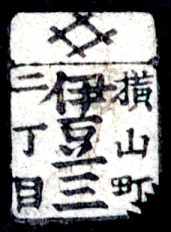 横山町
伊豆三
二丁目